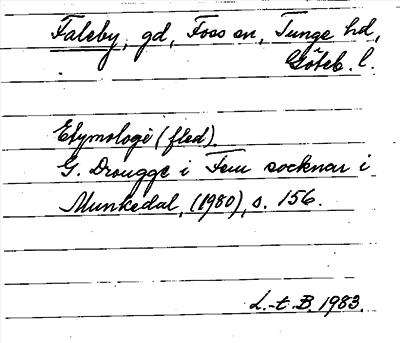 Faleby, gd, Foss sn, Tunge hd,
Göteb. l.
Etymologi (fled).
G. Drougge i Fem socknar i
Munkedal, (1980), s. 156.
L.-t B. 1983.